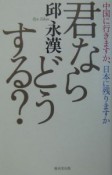 中国に行きますか、日本に残りますか
邱永漢
君なら
どう
する?